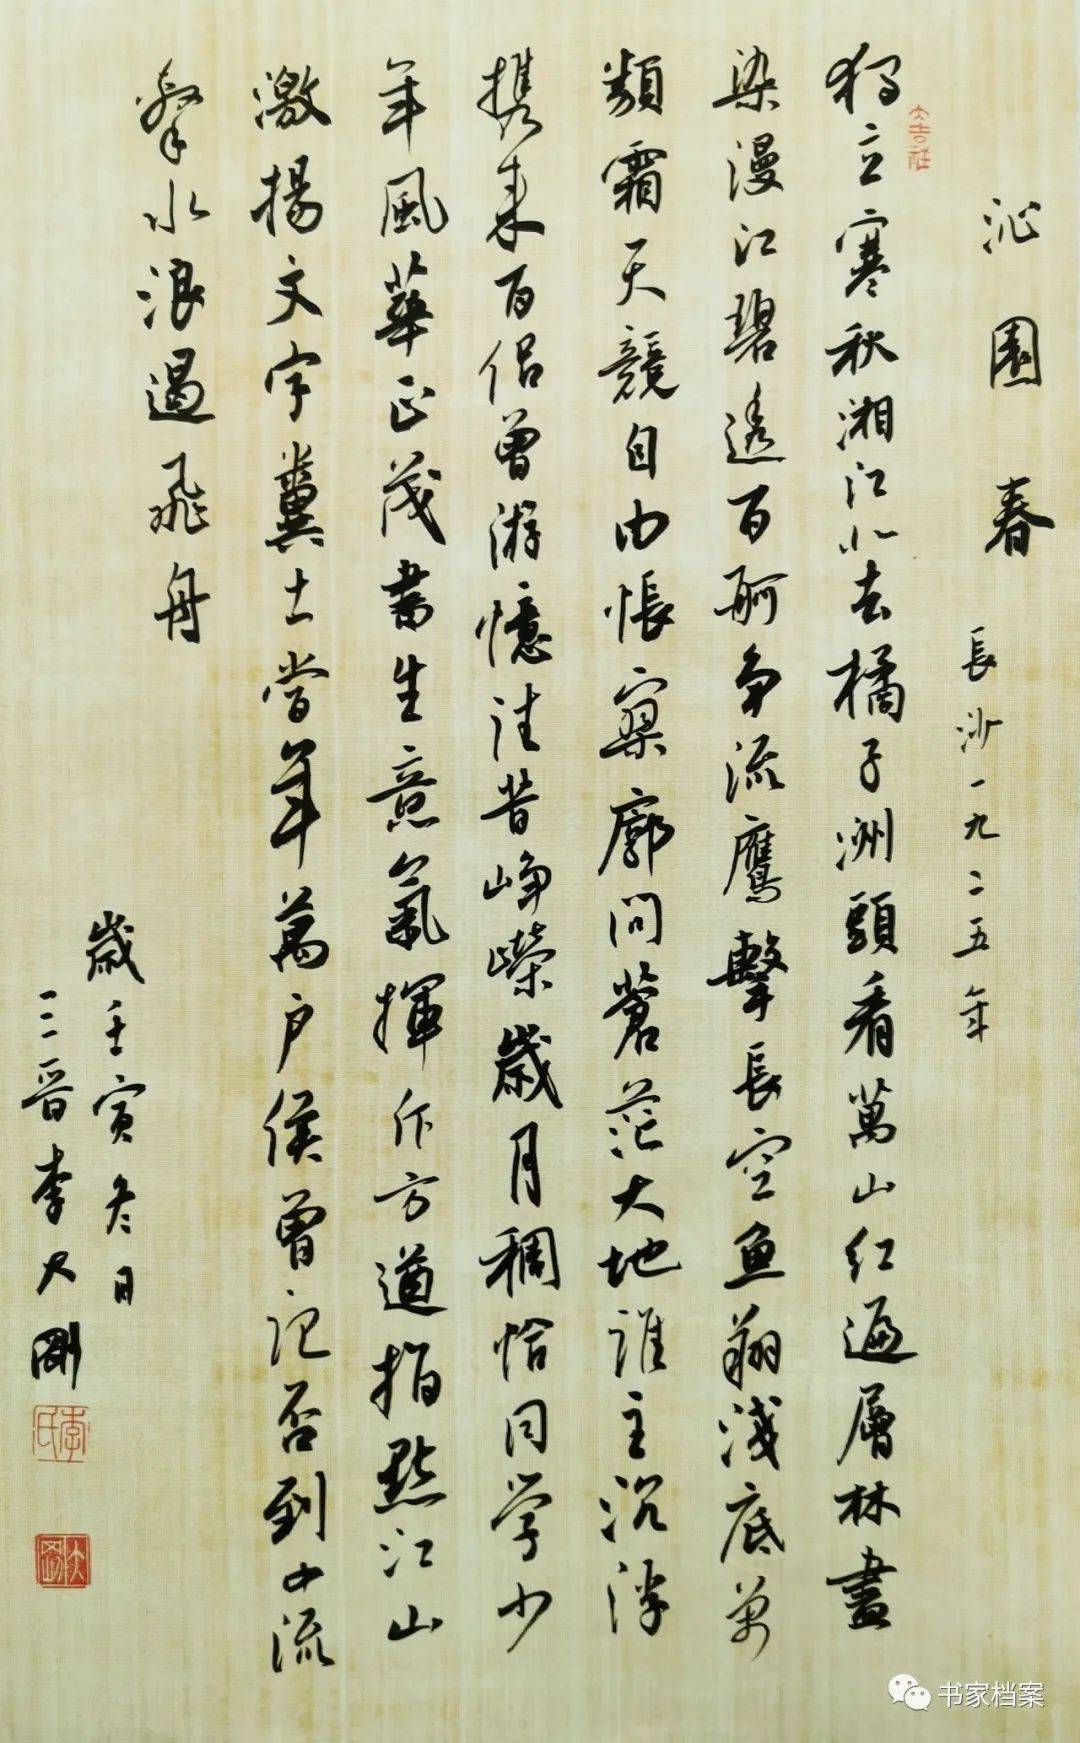 沁園春
長沙一九二五年
大吉祥
獨立寒秋湘江北去橘子洲頭看萬山紅遍層林盡
染漫江碧透百舸争流鷹擊長空魚翔淺底萬
類霜天競自由悵寥廓問蒼茫大地誰主沉浮
携来百侣曾游憶往昔峥嶸歲月稠恰同學少
年風華正茂書生意氣揮斥方遒指點江山
激揚文字糞土當年萬户侯曾記否到中流
擊水浪遏飛舟
歲壬寅冬日
三晋李大剛
李氏
大剛
书家档案